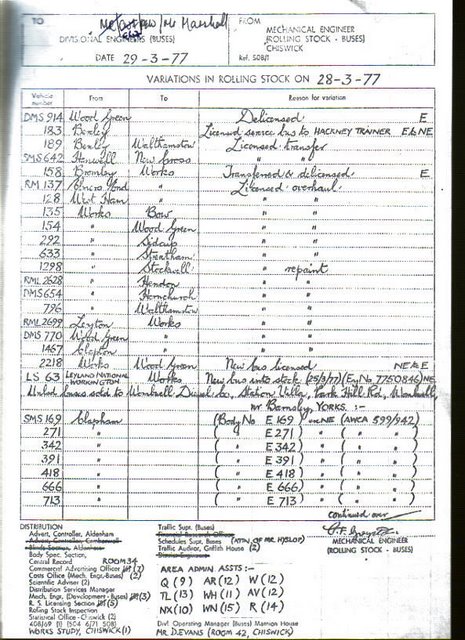 TO
FROM
Mr Marshall
DIVISIONAL ENGINEERS (BUSES)
MECHANICAL ENGINEER
(ROLLING STOCK - BUSES)
CHISWICK
DATE 29-3-77
Ref. 508/1
VARIATIONS IN ROLLING STOCK ON 28-3-77
Vehicle number From To Reason for variation
DMS 914 Wood Green Delicensed E
183 Bexley Licensed service bus to HACKNEY TRAINER E & NE
189 Bexley Walthamstow Licensed transfer
SMS 642 Hanwell New Cross " "
158 Bromley Works Transferred & delicensed E
RM 137 Ponders End " Licensed overhaul
128 West Ham " " "
135 Works Bow " "
154 " Wood Green " "
292 " Sidcup " "
633 " Streatham " "
1298 " Stockwell " repaint
RML 2628 " Hendon " "
DMS 654 " Hornchurch " "
796 " Walthamstow " "
RML 2699 Leyton Works " "
DMS 770 Wood Green " " "
1467 Clapton " " "
2218 Works Wood Green New bus licensed NE & E
LS 63 LEYLAND NATIONAL WORKINGTON Works New bus into stock (25/3/77) (Eng No 7750846) NE
Unlicd buses sold to Wombwell Diesel Co, Station Villa, Park Hill Rd, Wombwell
nr Barnsley, YORKS. :-
SMS 169 Clapham (Body No E 169) NE (AWCA 599/942)
271 " ( " E 271 ) " ( " " )
342 " ( " E 342 ) " ( " " )
391 " ( " E 391 ) " ( " " )
418 " ( " E 418 ) " ( " " )
666 " ( " E 666 ) " ( " " )
713 " ( " E 713 ) " ( " " )
continued over
DISTRIBUTION
Advert. Controller, Aldenham
Body Spec. Section,
Central Record ROOM 34
Commercial Advertising Officer
Costs Office (Mech. Engr.-Buses) (2)
Scientific Adviser (2)
Distribution Services Manager
Mech. Eng. (Development - Buses)
R. S. Licensing Section
Rolling Stock Inspection
Statistical Office - Chiswick (2)
WORKS STUDY, CHISWICK (1)
Traffic Supt. (Buses)
Financial Research Officer
Schedules Supt. Buses (ATTN. OF MR HYSLOP)
Traffic Auditor, Griffith House (2)
AREA ADMIN ASSTS :-
Q (9) AR (12) W (12)
TL (13) WH (11) AV (12)
NX (10) WN (15) R (14)
Divl. Operating Manager (Buses) Mansion House
Mr D. EVANS (ROOM 42, CHISWICK)
MECHANICAL ENGINEER
(ROLLING STOCK - BUSES)